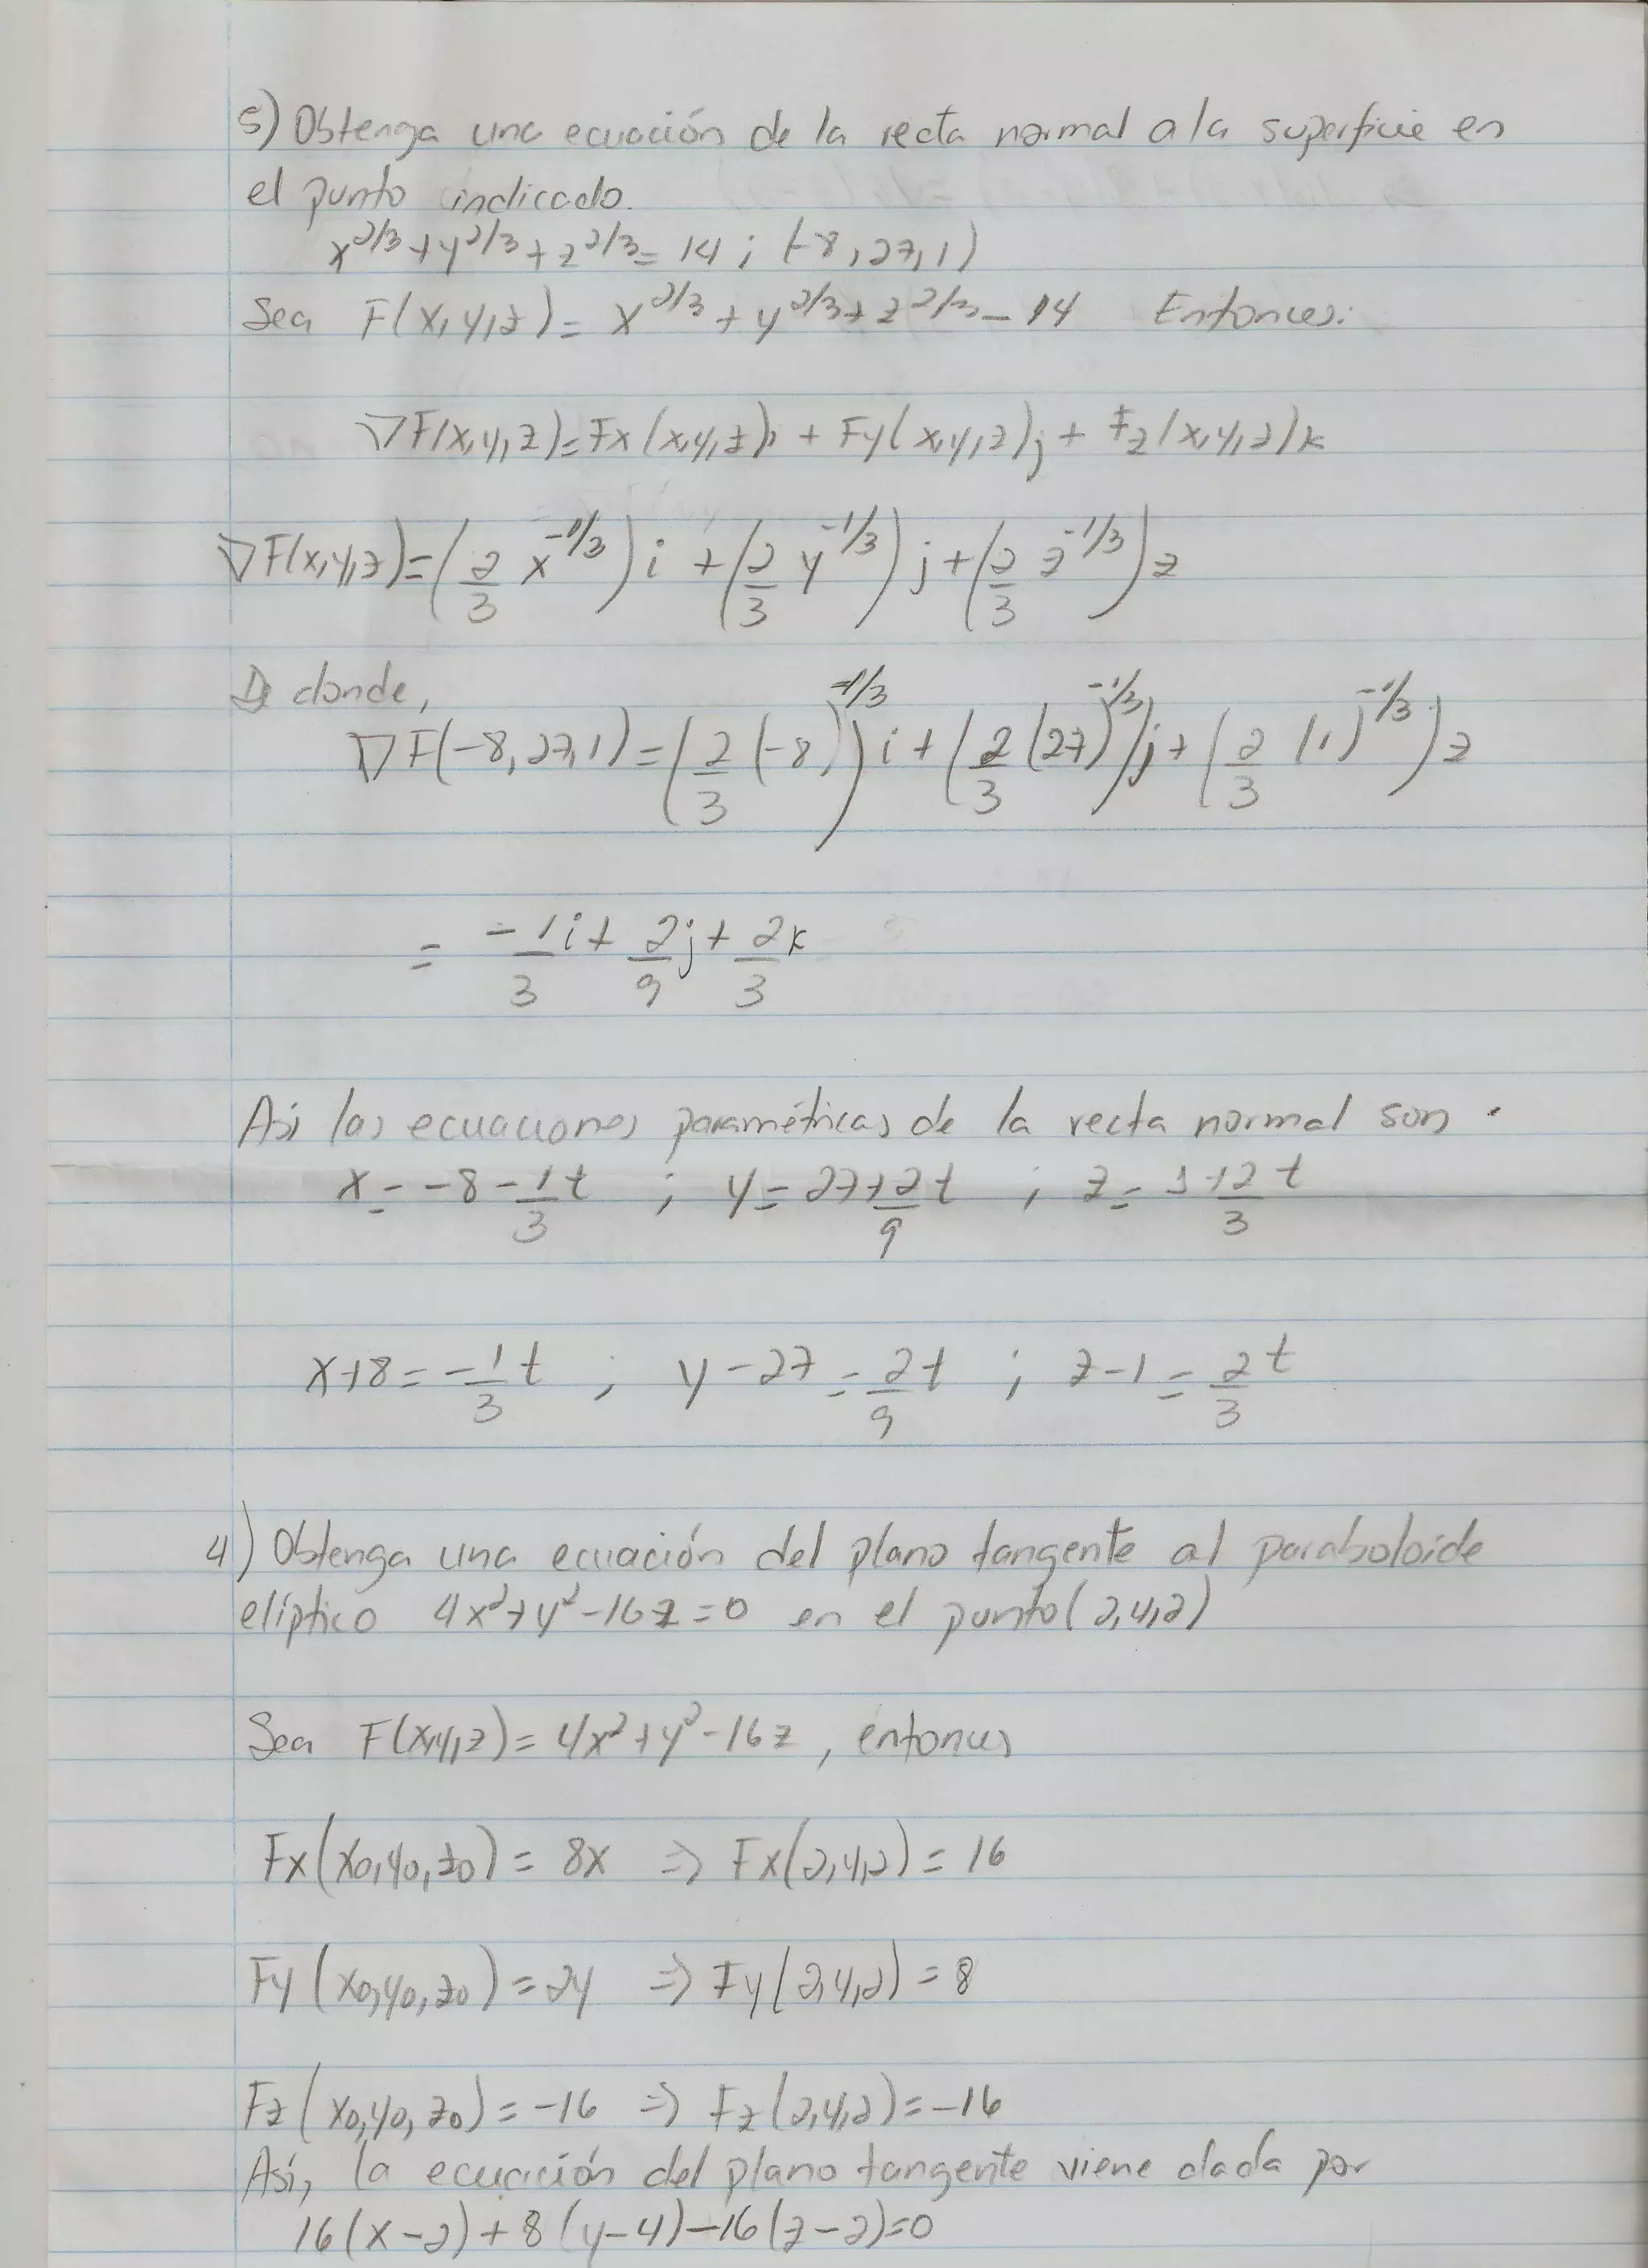 5) Obtenga una ecuación de la recta normal a la superficie en
el punto indicado.
x^2/3 + y^2/3 + z^2/3 = 14 ; (-8, 27, 1)
Sea F(x, y, z) = x^2/3 + y^2/3 + z^2/3 - 14 Entonces:
∇F(x, y, z) = Fx(x, y, z)i + Fy(x, y, z)j + Fz(x, y, z)k
∇F(x, y, z) = (2/3 x^-1/3)i + (2/3 y^-1/3)j + (2/3 z^-1/3)z
De donde,
∇F(-8, 27, 1) = (2/3 (-8)^-1/3)i + (2/3 (27)^-1/3)j + (2/3 (1)^-1/3)z
= -1/3 i + 2/9 j + 2/3 k
Así las ecuaciones paramétricas de la recta normal son
x = -8 - 1/3 t ; y = 27 + 2/9 t ; z = 1 + 2/3 t
x + 8 = -1/3 t ; y - 27 = 2/9 t ; z - 1 = 2/3 t
4) Obtenga una ecuación del plano tangente al paraboloide
elíptico 4x² + y² - 16z = 0 en el punto (2, 4, 2)
Sea F(x, y, z) = 4x² + y² - 16z, entonces
Fx(x0, y0, z0) = 8x => Fx(2, 4, 2) = 16
Fy(x0, y0, z0) = 2y => Fy(2, 4, 2) = 8
Fz(x0, y0, z0) = -16 => Fz(2, 4, 2) = -16
Así, la ecuación del plano tangente viene dada por
16(x - 2) + 8(y - 4) - 16(z - 2) = 0